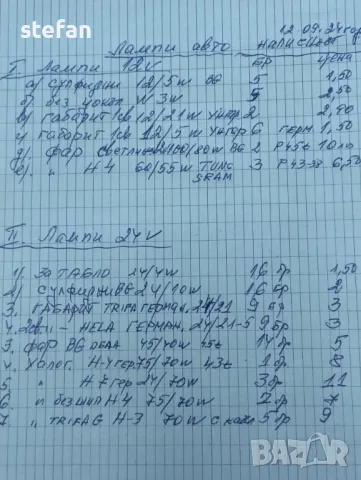 stefan
12.09.24 год
Лампи авто НАЛИЧНОСТ
I. Лампи 12V бр цена
а) сулфидни 12/5w 5 1,50
б) без цокал W 3W 5 2,50
в) габарит 1св 12/21w Унгар 2 2,00
г) габарит 1св 12/5w Унгар 6 герм 1,50
д) фар 100/80w BG 2 P45t 10лв
е) " H4 60/55w TUNGSRAM 3 P43-38 6,50
II. Лампи 24V
1) За ТАБЛО 24/4w 16 бр 1,50
2) 24/10w 16 бр 2
3. ГАБАРИТ TRIFA ГЕРМАН. 24/21 9 бр 3
HELA ГЕРМАН. 24/21-5 9 бр 3
3. фар BG 45/40w 45t 14 бр 5
4. халог. H-4 гер 75/70w 43t 1 бр 8
5 " H7 гер 24/70w 3 бр 11
6 " H4 75/70w 2 бр 7
7 " TRIFAG H-3 70w 5 бр 9
BAZAR.BG